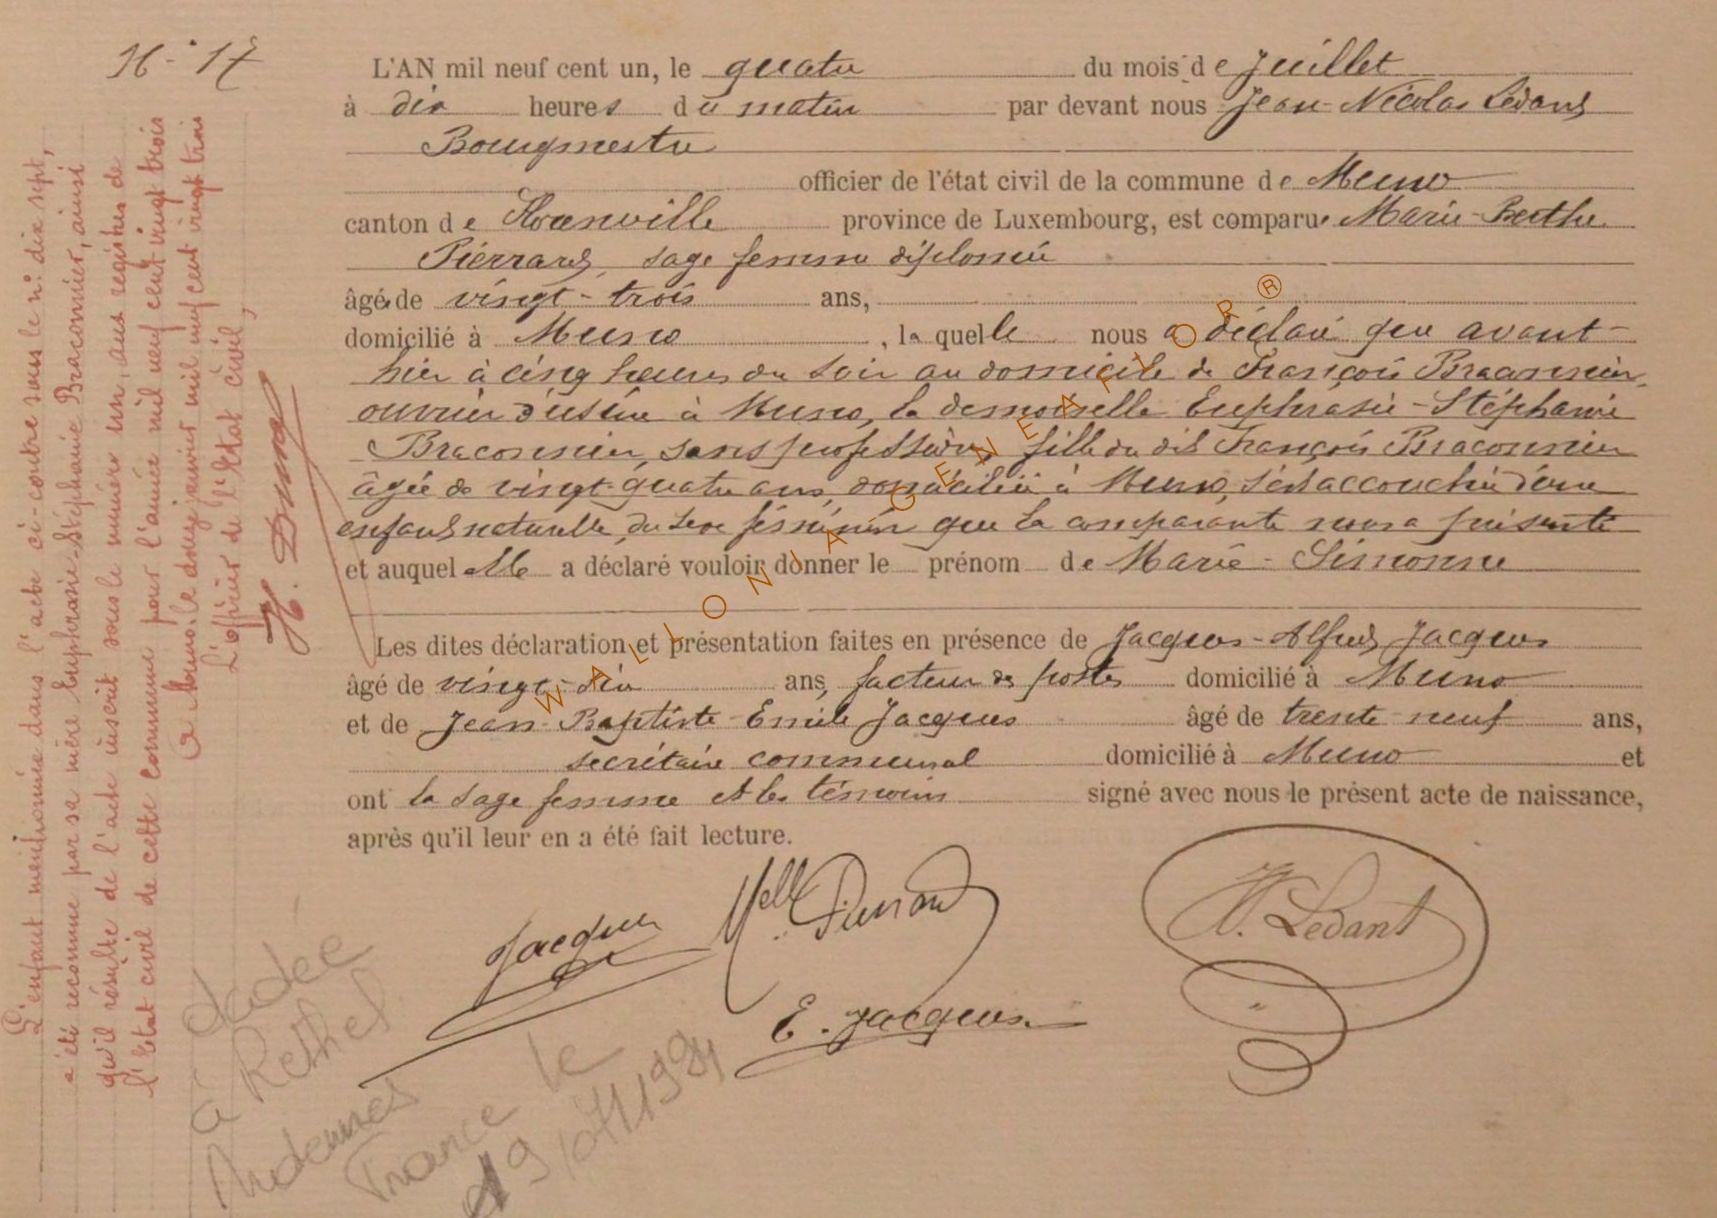 N° 17
L'AN mil neuf cent un, le quatre du mois de Juillet
à dix heures du matin par devant nous Jean-Nicolas Ledant
Bourgmestre
officier de l'état civil de la commune de Muno
canton de Florenville province de Luxembourg, est comparue Marie-Berthe
Pierrard, sage femme diplomée
âgée de vingt-trois ans,
domicilié à Muno, laquelle nous a déclaré que avant-
hier à cinq heures du soir au domicile de François Braconnier,
ouvrier d'usine à Muno, la demoiselle Euphrasie-Stéphanie
Braconnier, sans profession, fille du dit François Braconnier
âgée de vingt-quatre ans, domiciliée à Muno, s'est accouchée d'une
enfant naturelle du sexe féminin que la comparante nous a présenté
et auquel elle a déclaré vouloir donner le prénom de Marie-Simonne
Les dites déclaration et présentation faites en présence de Jacques-Alfred Jacques
âgé de vingt-dix ans, facteur des postes domicilié à Muno
et de Jean-Baptiste-Emile Jacques âgé de trente-neuf ans,
secrétaire communal domicilié à Muno et
ont la sage femme et les témoins signé avec nous le présent acte de naissance,
après qu'il leur en a été fait lecture.
Jacques Mell Pierrard N. Ledant
E. Jacques
L'enfant mentionnée dans l'acte ci-contre sous le n° dix sept,
a été reconnue par sa mère Euphrasie-Stéphanie Braconnier, ainsi
qu'il résulte de l'acte inscrit sous le numéro un, aux registres de
l'état civil de cette commune pour l'année mil neuf cent vingt trois
A Muno, le douze janvier mil neuf cent vingt trois
L'officier de l'état civil,
à Rethel
Ardennes
France le
19/04/1984
WALLONIA GENEAFLOR ®